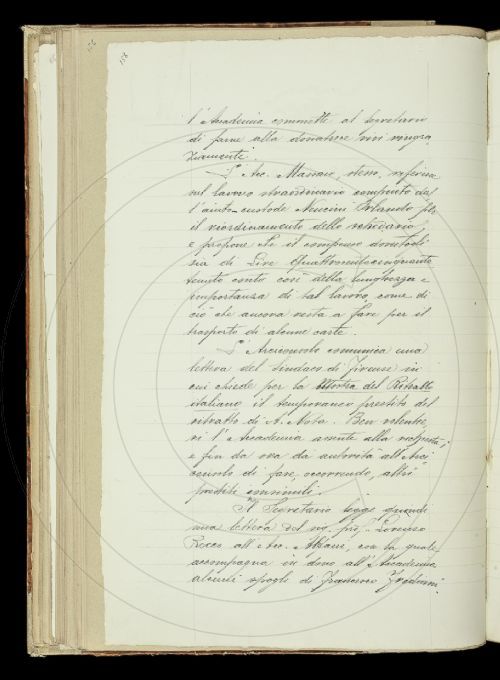 158
l'Accademia commette al Segretario
di farne alla donatrice vivi ringra-
ziamenti.
L'Acc. Massaro, stesso, riferisce
sul lavoro straordinario compiuto dal
l'aiuto-custode Nencini Orlando per
il riordinamento dello schedario,
e propone che il compenso donatogli
sia di Lire Quattrocentocinquanta
tenuto conto così della lunghezza e
importanza di tal lavoro, come di
ciò che ancora resta a fare per il
trasporto di alcune carte.
L'Arciconsolo comunica una
lettera del Sindaco di Firenze in
cui chiede per la Mostra del Ritratto
italiano il temporaneo prestito del
ritratto di A. Nota. Ben volentie-
ri l'Accademia assente alla richiesta;
e fin da ora dà autorità all'Arci-
consolo di fare, occorrendo, altri
prestiti consimili.
Il Segretario legge quindi
una lettera del sig. prof. Lorenzo
Rocco all'Acc. Mazzi, con la quale
accompagna in dono all'Accademia
alcuni spogli di Francesco